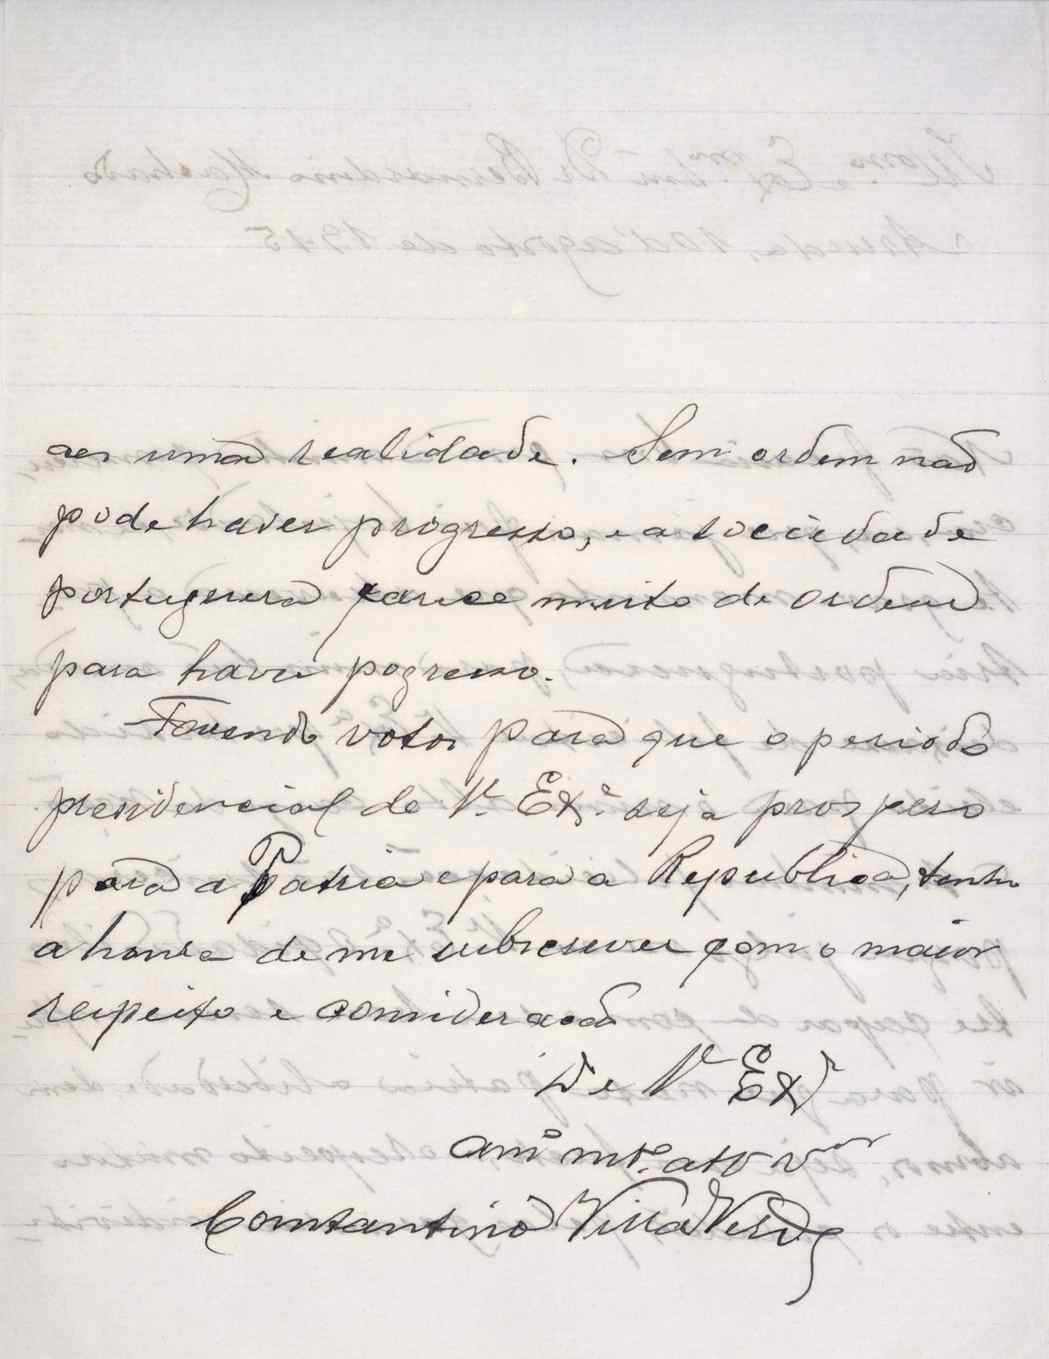 ser uma realidade. Sem ordem não
pode haver progresso, e a sociedade
portugueza parece muito de ordem
para haver pogresso.
Fazendo votos para que o periodo
presidencial de Vª Exª seja prospero
para a Patria e para a Republica, tenho
a honra de me subscrever com o maior
respeito e consideração
De Vª Exª
amº mtº atº vor
Constantino Villa Verde